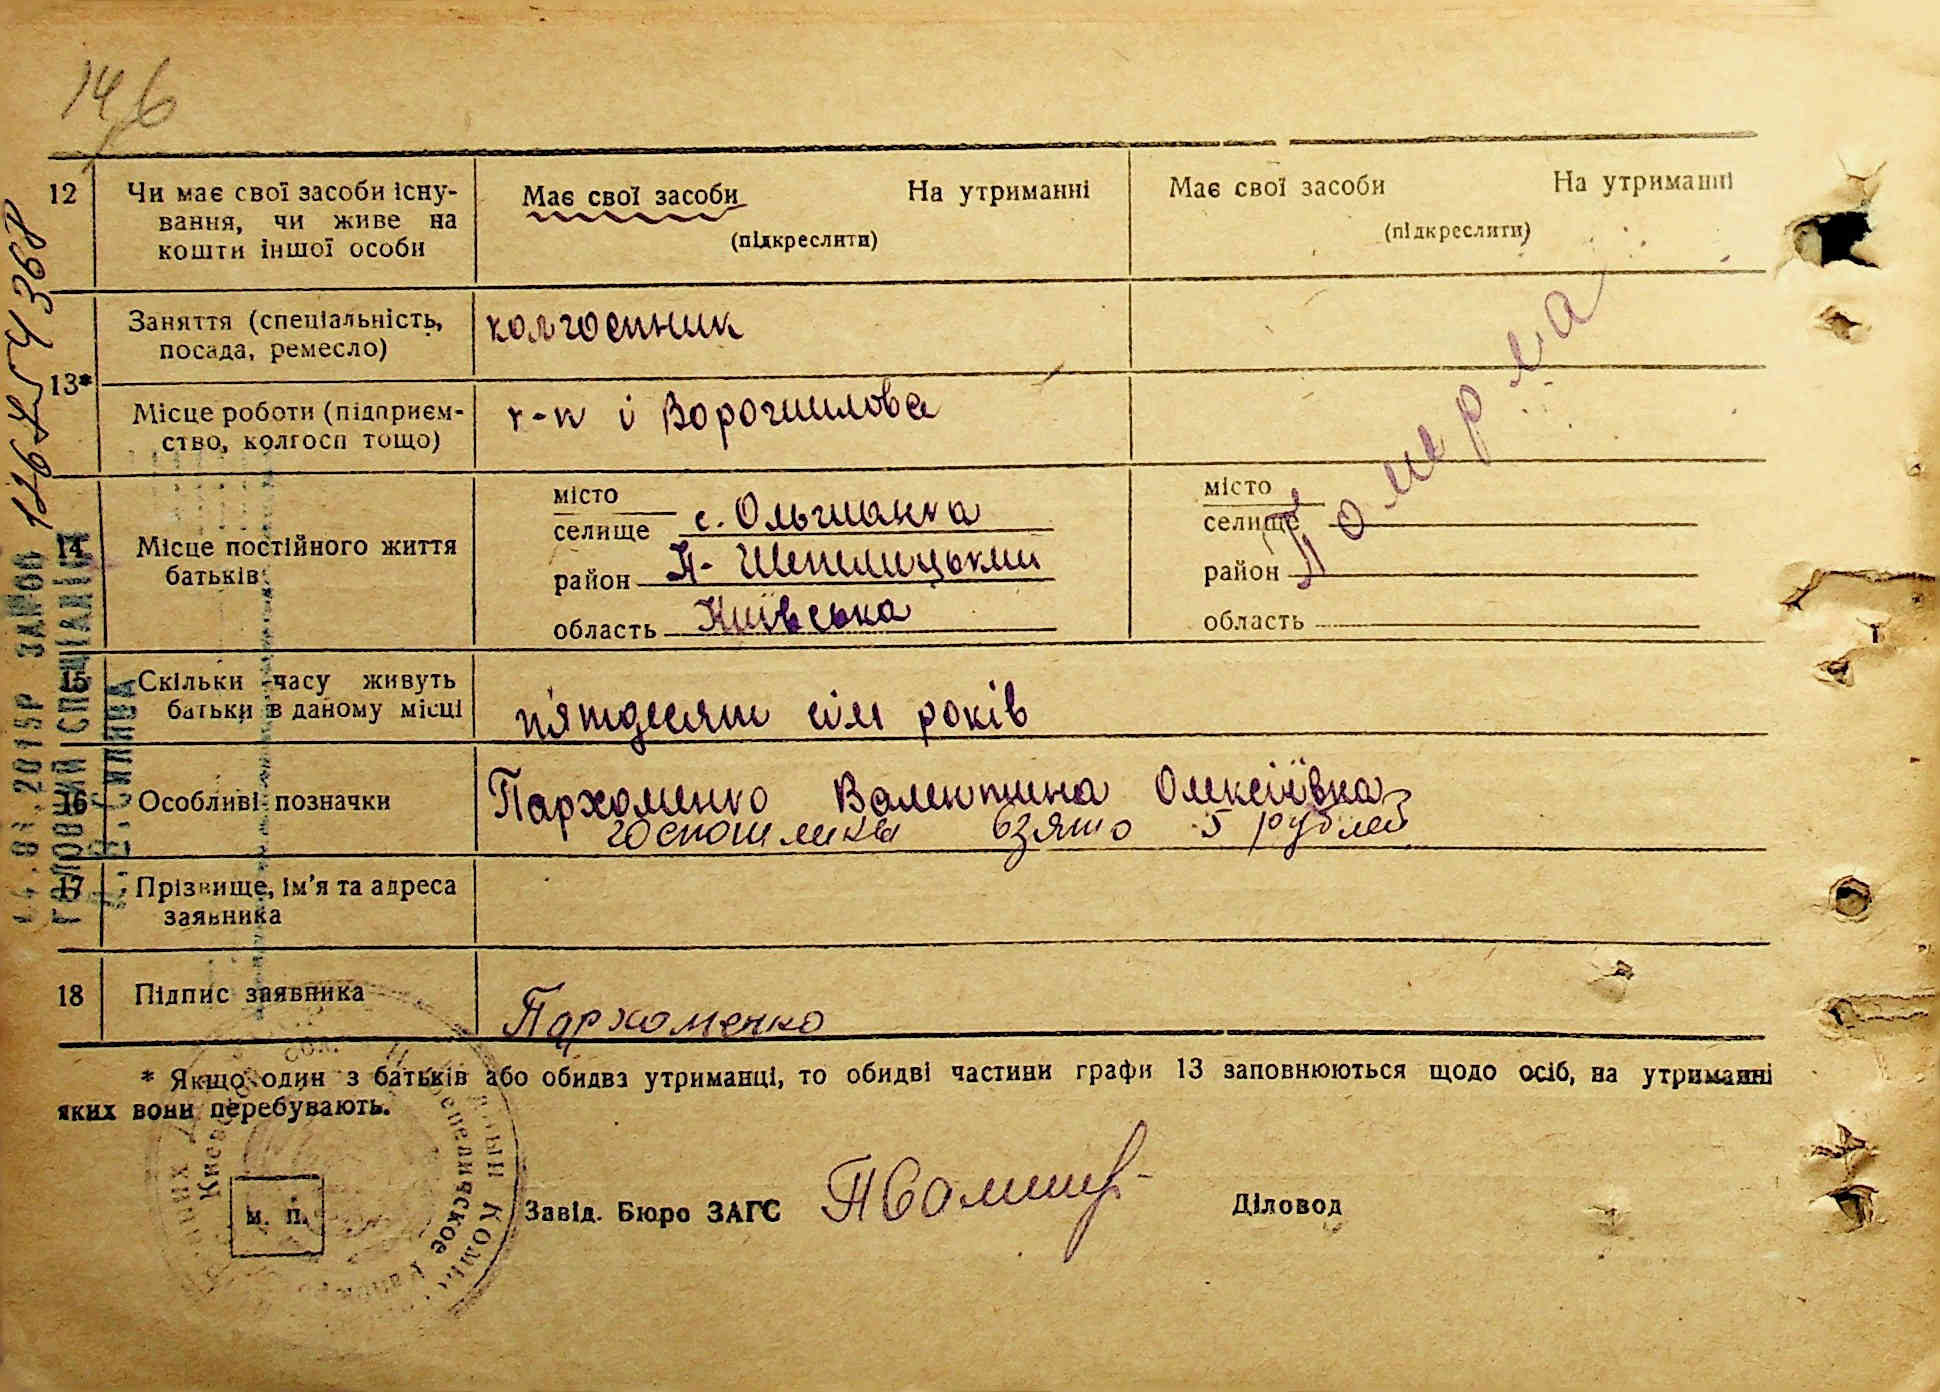 146
12 Чи має свої засоби існу-
вання, чи живе на
кошти іншої особи
Має свої засоби На утриманні
(підкреслити)
Має свої засоби На утриманні
(підкреслити)
13*
Заняття (спеціальність,
посада, ремесло)
колгоспник
Місце роботи (підприєм-
ство, колгосп тощо)
к-п і Ворошилова
Померла
14 Місце постійного життя
батьків
місто
селище с. Ольшанка
район Н-Шепелицький
область Київська
місто
селище
район
область
15 Скільки часу живуть
батьки в даному місці
пятдесят сім років
16 Особливі позначки
Пархоменко Валентина Олексіївна
госпошлины взято 5 рублей
17 Прізвище, ім'я та адреса
заявника
18 Підпис заявника
Пархоменко
* Якщо один з батьків або обидва утриманці, то обидві частини графи 13 заповнюються щодо осіб, на утриманні
яких вони перебувають.
м. п.
Завід. Бюро ЗАГС
Діловод
2015Р ЗА№00
ГОЛОВНИЙ СПЕЦІАЛІСТ